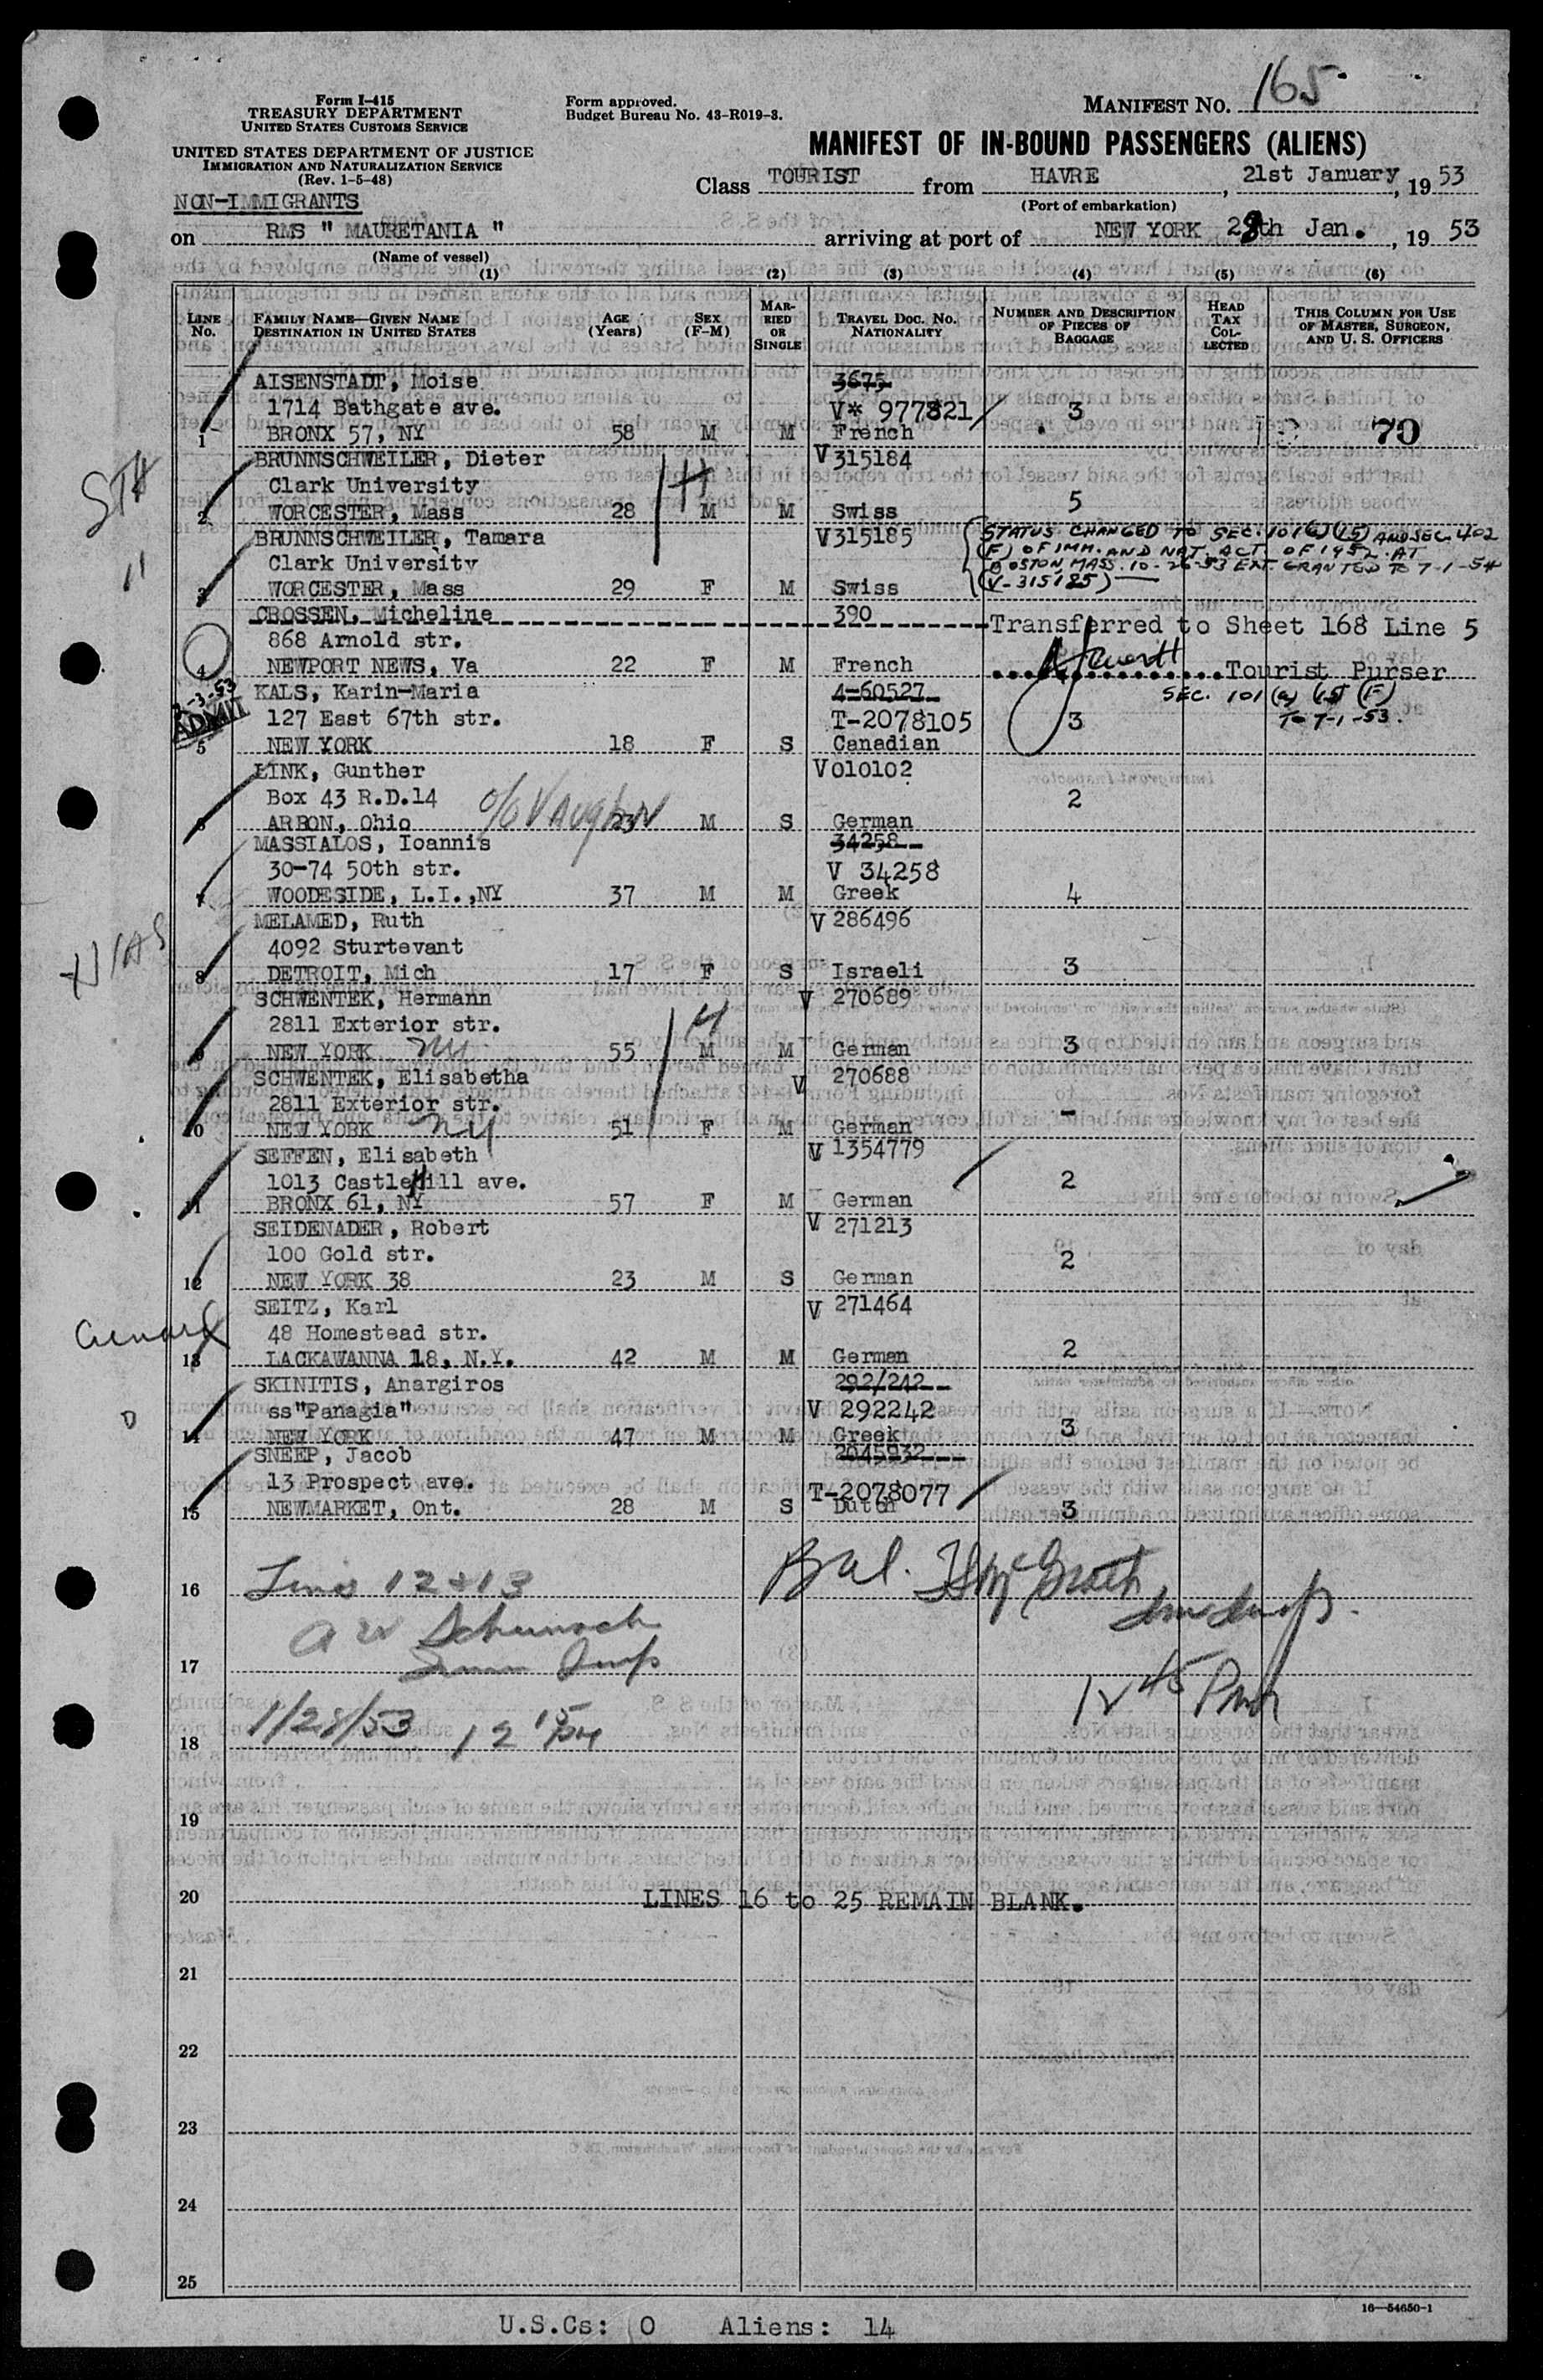 165
Form I-415
TREASURY DEPARTMENT
UNITED STATES CUSTOMS SERVICE
UNITED STATES DEPARTMENT OF JUSTICE
IMMIGRATION AND NATURALIZATION SERVICE
(Rev. 1-5-48)
Form approved.
Budget Bureau No. 43-R019-3.
MANIFEST NO.
MANIFEST OF IN-BOUND PASSENGERS (ALIENS)
Class TOURIST from HAVRE, 21st January, 19 53
(Port of embarkation)
NON-IMMIGRANTS
on RMS " MAURETANIA " arriving at port of NEW YORK 28th Jan., 19 53
(Name of vessel)
(1) (2) (3) (4) (5) (6)
LINE No. FAMILY NAME—GIVEN NAME DESTINATION IN UNITED STATES AGE (Years) SEX (F-M) MARRIED OR SINGLE TRAVEL DOC. NO. NATIONALITY NUMBER AND DESCRIPTION OF PIECES OF BAGGAGE HEAD TAX COLLECTED THIS COLUMN FOR USE OF MASTER, SURGEON, AND U. S. OFFICERS
AISENSTADT, Moise 3675
1714 Bathgate ave. V* 977821 3
1 BRONX 57, NY 58 M M French 70
BRUNNSCHWEILER, Dieter V315184
Clark University 5
2 WORCESTER, Mass 28 M M Swiss
BRUNNSCHWEILER, Tamara V315185 STATUS CHANGED TO SEC. 101(a)(15) AND SEC. 402
Clark University (F) OF IMM. AND NAT. ACT OF 1952 AT
BOSTON MASS. 10-26-53 EXT. GRANTED TO 7-1-54
3 WORCESTER, Mass 29 F M Swiss (V-315185)
CROSSEN, Micheline 390 Transferred to Sheet 168 Line 5
868 Arnold str.
4 NEWPORT NEWS, Va 22 F M French Tourist Purser
KALS, Karin-Maria 4-60527 SEC. 101 (a) (15) (F)
ADMIT
127 East 67th str. T-2078105 3 TO 7-1-53.
5 NEW YORK 18 F S Canadian
LINK, Gunther V010102
Box 43 R.D.14 c/o Vaughn 2
6 ARBON, Ohio 23 M S German
MASSIALOS, Ioannis 34258
30-74 50th str. V 34258
7 WOODESIDE, L.I.,NY 37 M M Greek 4
MELAMED, Ruth V 286496
4092 Sturtevant
8 DETROIT, Mich 17 F S Israeli 3
HIAS
SCHWENTEK, Hermann V 270689
2811 Exterior str.
9 NEW YORK NY 55 M M German 3
SCHWENTEK, Elisabetha V 270688
2811 Exterior str. -
10 NEW YORK NY 51 F M German
SEFFEN, Elisabeth V 1354779
1013 CastleHill ave. 2
11 BRONX 61, NY 57 F M German
SEIDENADER, Robert V 271213
100 Gold str. 2
12 NEW YORK 38 23 M S German
SEITZ, Karl V 271464
Cunard
48 Homestead str.
13 LACKAWANNA 18, N.Y. 42 M M German 2
SKINITIS, Anargiros 292/242
ss"Panagia" V 292242
14 NEW YORK 47 M M Greek 3
SNEEP, Jacob 2045932
13 Prospect ave. T-2078077
15 NEWMARKET, Ont. 28 M S Dutch 3
16 Lines 12 & 13 Bal.
17
12 45 PM
18 1/28/53 12 15 PM
19
20 LINES 16 to 25 REMAIN BLANK.
21
22
23
24
25
16—54650-1
U.S.Cs: 0 Aliens: 14